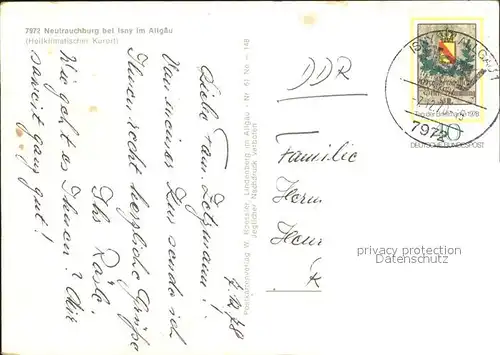 7972 Neutrauchburg bei Isny im Allgäu
(Heilklimatischer Kurort)
7.12.78
Liebe Fam.
Von meiner Kur sende ich
Ihnen recht herzliche Grüße
Ihr
Wie geht es Ihnen? Mir
soweit ganz gut!
Postkartenverlag W. Lindenberg im Allgäu - Nr. 61 No - 148
Jeglicher Nachdruck verboten
DDR
Familie
Herrn
K
ISNY IM ALLGÄU 1
7972
Tag der Briefmarke 1978
40
DEUTSCHE BUNDESPOST
privacy protection
Datenschutz